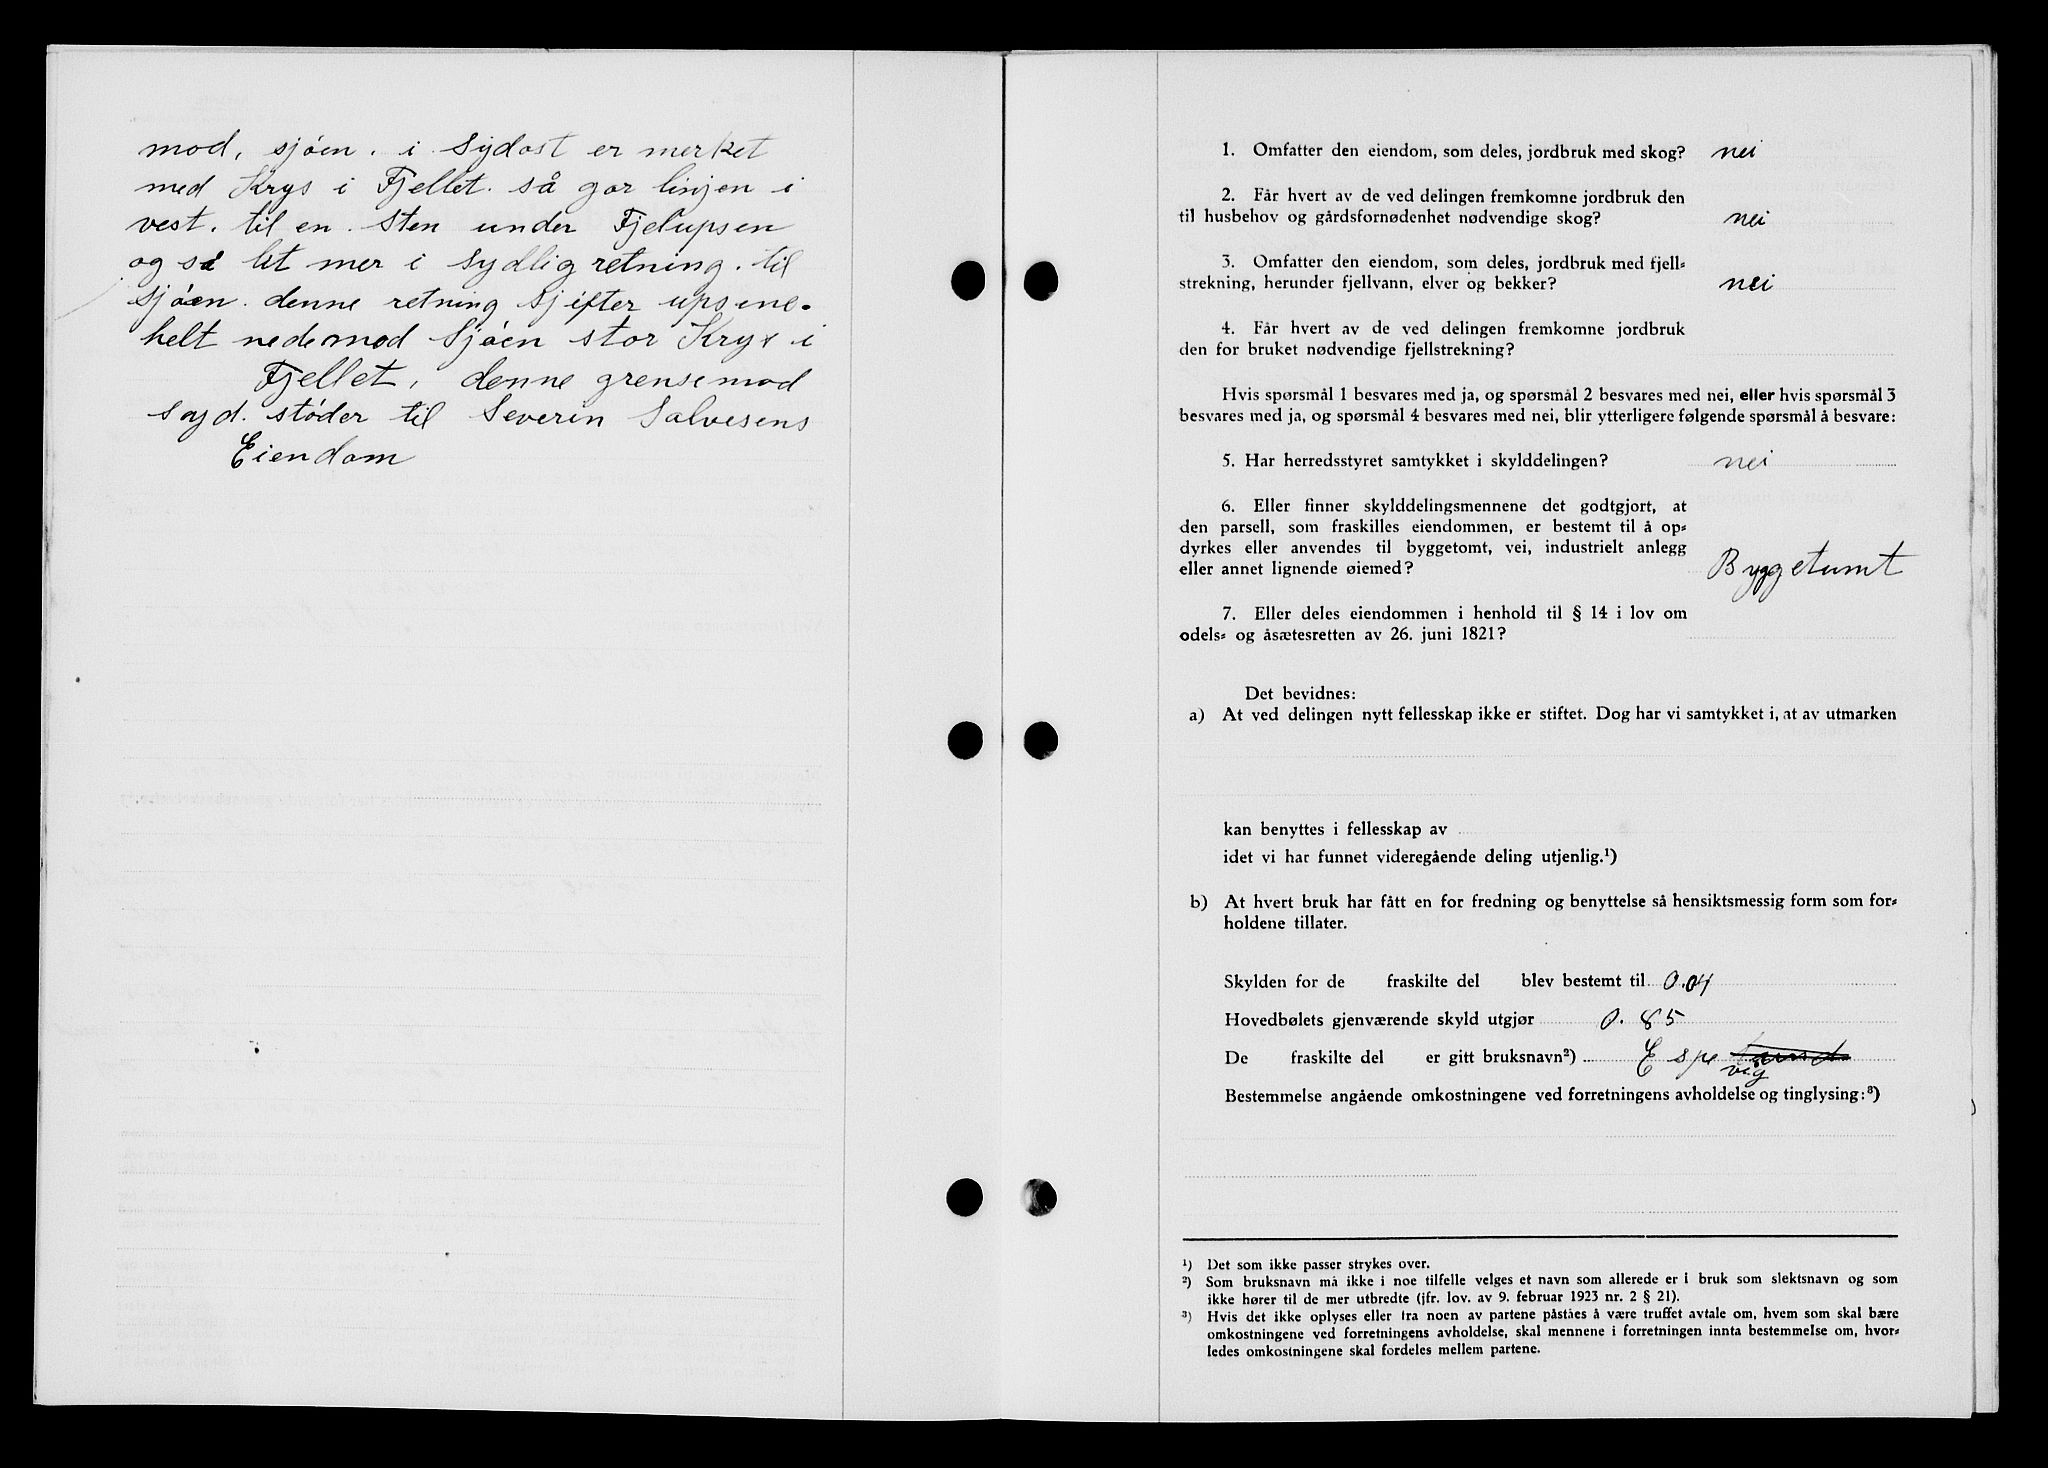 mod, sjøen. i Sydost er merket
med Krys i Fjellet. så gor linjen i
vest. til en. Sten under Fjelupsen
og så lit mer i Sydlig retning. til
sjøen. denne retning sjifter upsene.
helt nedemod Sjøen stor Krys i
Fjellet, denne grensemod
syd. støder til Severin Salvesens
Eiendom
1. Omfatter den eiendom, som deles, jordbruk med skog? nei
2. Får hvert av de ved delingen fremkomne jordbruk den
til husbehov og gårdsfornødenhet nødvendige skog? nei
3. Omfatter den eiendom, som deles, jordbruk med fjell-
strekning, herunder fjellvann, elver og bekker? nei
4. Får hvert av de ved delingen fremkomne jordbruk
den for bruket nødvendige fjellstrekning?
Hvis spørsmål 1 besvares med ja, og spørsmål 2 besvares med nei, eller hvis spørsmål 3
besvares med ja, og spørsmål 4 besvares med nei, blir ytterligere følgende spørsmål å besvare:
5. Har herredsstyret samtykket i skylddelingen? nei
6. Eller finner skylddelingsmennene det godtgjort, at
den parsell, som fraskilles eiendommen, er bestemt til å op-
dyrkes eller anvendes til byggetomt, vei, industrielt anlegg
eller annet lignende øiemed? Byggetumt
7. Eller deles eiendommen i henhold til § 14 i lov om
odels- og åsætesretten av 26. juni 1821?
Det bevidnes:
a) At ved delingen nytt fellesskap ikke er stiftet. Dog har vi samtykket i, at av utmarken
kan benyttes i fellesskap av
idet vi har funnet videregående deling utjenlig.¹)
b) At hvert bruk har fått en for fredning og benyttelse så hensiktsmessig form som for-
holdene tillater.
Skylden for de fraskilte del blev bestemt til 0.04
Hovedbølets gjenværende skyld utgjør 0.85
De fraskilte del er gitt bruksnavn²) Espe
vig
Bestemmelse angående omkostningene ved forretningens avholdelse og tinglysing:³)
¹) Det som ikke passer strykes over.
²) Som bruksnavn må ikke i noe tilfelle velges et navn som allerede er i bruk som slektsnavn og som
ikke hører til de mer utbredte (jfr. lov. av 9. februar 1923 nr. 2 § 21).
³) Hvis det ikke oplyses eller fra noen av partene påståes å være truffet avtale om, hvem som skal bære
omkostningene ved forretningens avholdelse, skal mennene i forretningen innta bestemmelse om, hvor-
ledes omkostningene skal fordeles mellem partene.